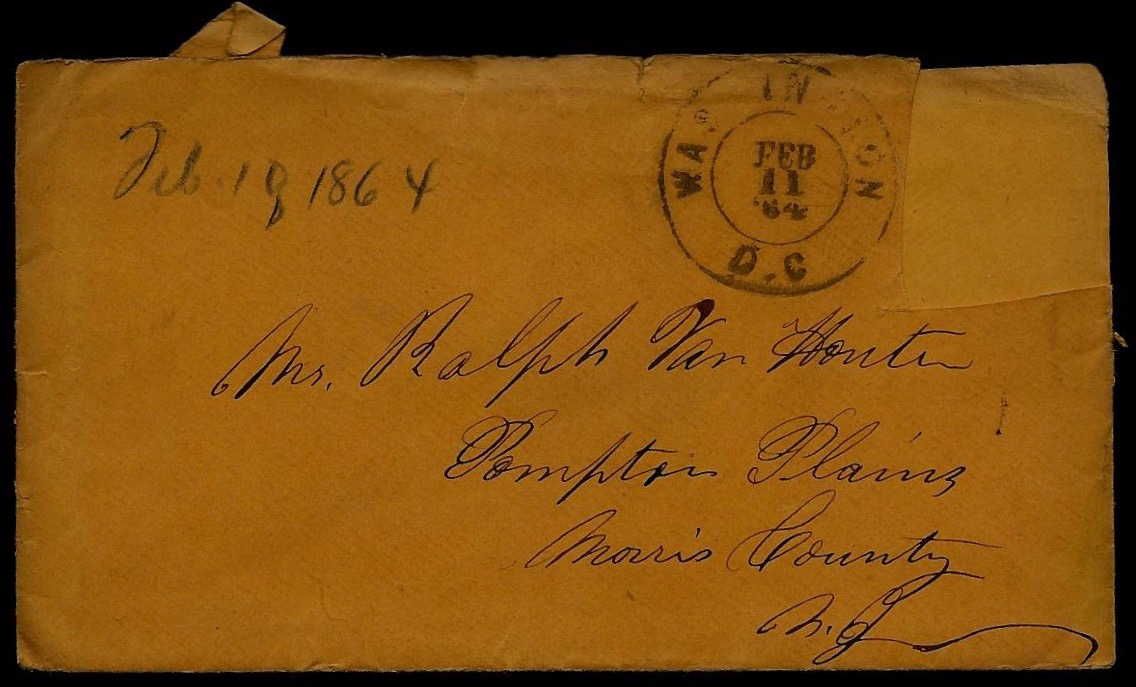 Feb. 1 1864
WASHINGTON
FEB
11
'64
D.C
Mr. Ralph Van Houten
Pompton Plains
Morris County
N.J